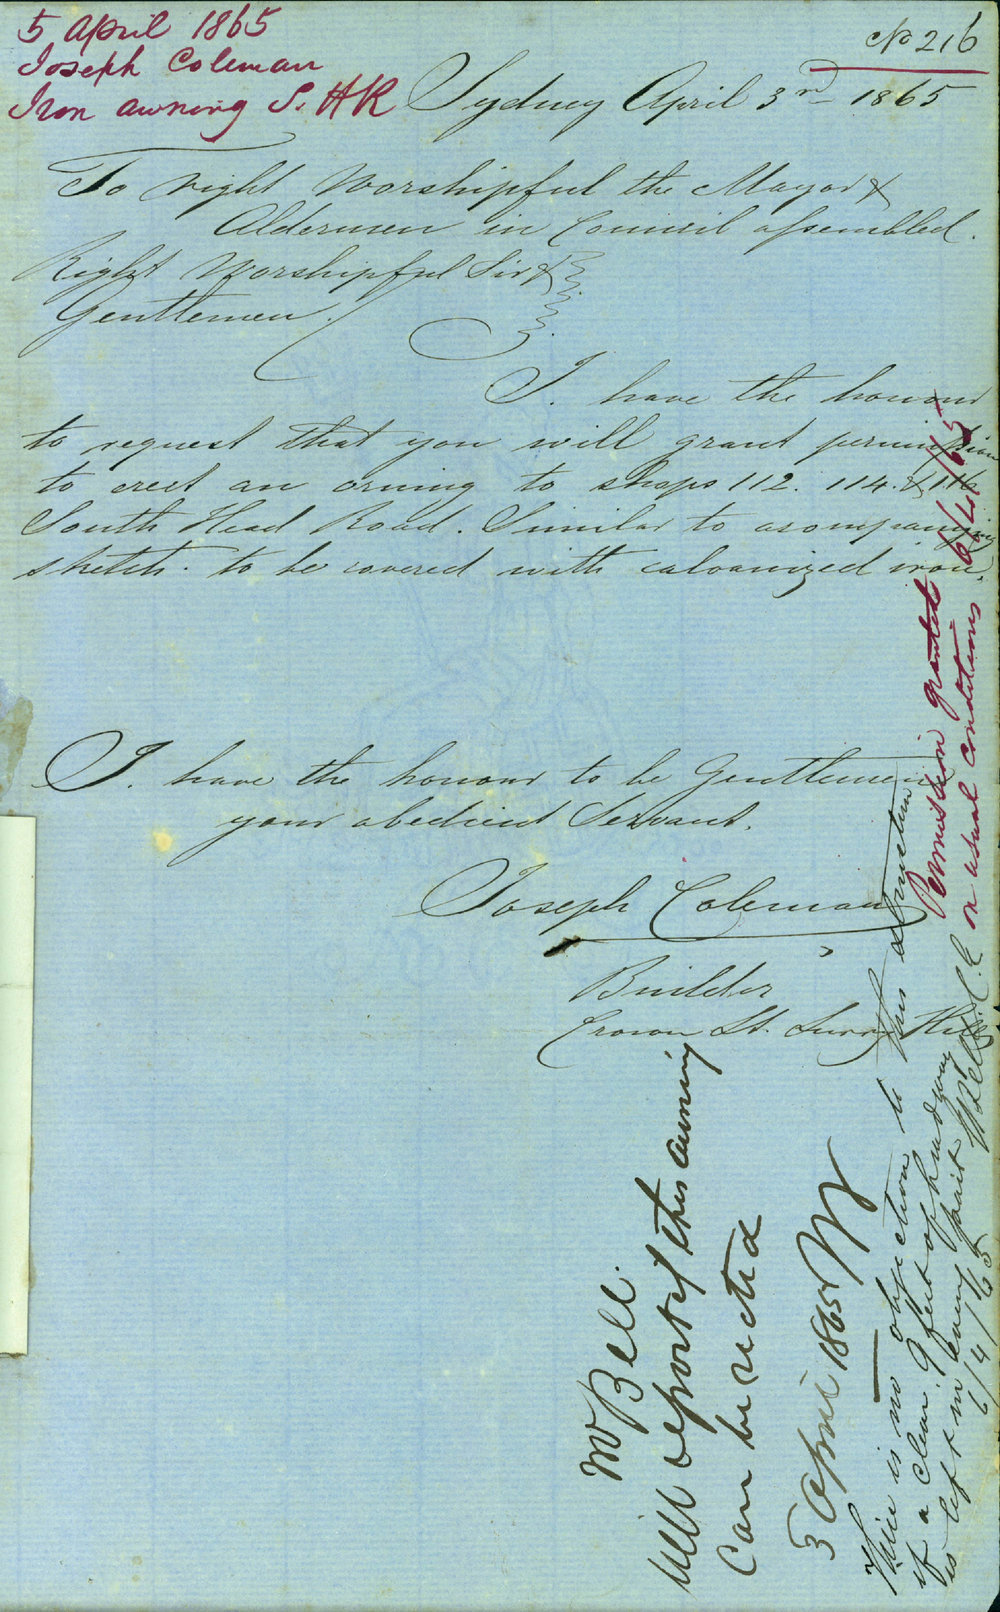 5 April 1865
Joseph Coleman
Iron awning S. H R
No 216
Sydney April 3rd 1865
To right Worshipful the Mayor &
Aldermen in Council assembled.
Right Worshipful Sir &
Gentlemen
I. have the honour
to request that you will grant permission
to erect an orning to shops 112. 114. & 116
South Head Road. Similar to acompanying
sketch. to be covered with calvanized iron.
I. have the honour to be Gentlemen
your obedient Servant.
Joseph Coleman
Builder
Crown St. Surry Hills
Mr Bell.
Will report if this awning
Can be erected
5 April 1865
There is no objection to this structure
if a clear 9 feet of headway
is left in every part
6/4/65
Permission granted 6/4/65
on usual conditions